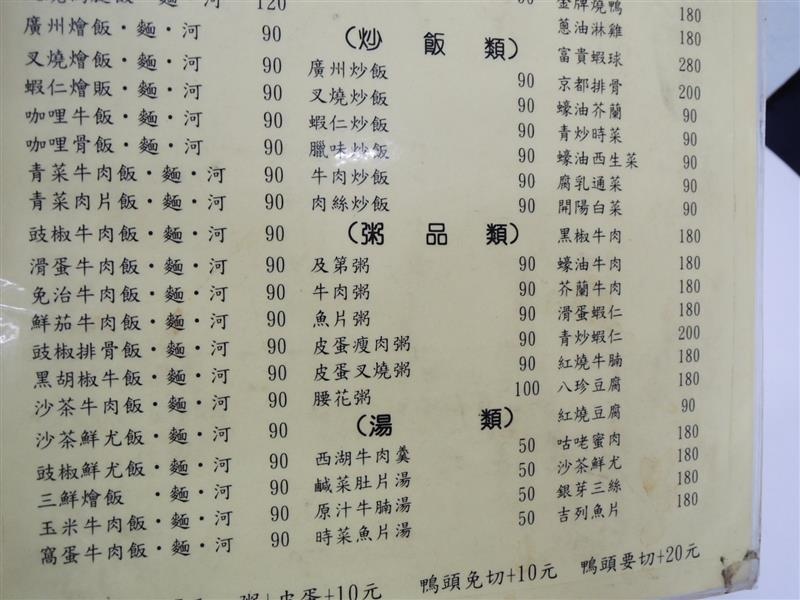 飯·麵·河 120
廣州燴飯·麵·河 90
叉燒燴飯·麵·河 90
蝦仁燴販·麵·河 90
咖哩牛飯·麵·河 90
咖哩骨飯·麵·河 90
青菜牛肉飯·麵·河 90
青菜肉片飯·麵·河 90
豉椒牛肉飯·麵·河 90
滑蛋牛肉飯·麵·河 90
免治牛肉飯·麵·河 90
鮮茄牛肉飯·麵·河 90
豉椒排骨飯·麵·河 90
黑胡椒牛飯·麵·河 90
沙茶牛肉飯·麵·河 90
沙茶鮮尤飯·麵·河 90
豉椒鮮尤飯·麵·河 90
三鮮燴飯 ·麵·河 90
玉米牛肉飯·麵·河 90
窩蛋牛肉飯·麵·河 90
(炒飯類)
廣州炒飯 90
叉燒炒飯 90
蝦仁炒飯 90
臘味炒飯 90
牛肉炒飯 90
肉絲炒飯 90
(粥品類)
及第粥 90
牛肉粥 90
魚片粥 90
皮蛋瘦肉粥 90
皮蛋叉燒粥 90
腰花粥 100
(湯類)
西湖牛肉羹 50
鹹菜肚片湯 50
原汁牛腩湯 50
時菜魚片湯 50
金牌燒鴨 180
蔥油淋雞 180
富貴蝦球 280
京都排骨 200
蠔油芥蘭 90
青炒時菜 90
蠔油西生菜 90
腐乳通菜 90
開陽白菜 90
黑椒牛肉 180
蠔油牛肉 180
芥蘭牛肉 180
滑蛋蝦仁 180
青炒蝦仁 200
紅燒牛腩 180
八珍豆腐 180
紅燒豆腐 90
咕咾蜜肉 180
沙茶鮮尤 180
銀芽三絲 180
吉列魚片 180
粥+皮蛋+10元 鴨頭免切+10元 鴨頭要切+20元